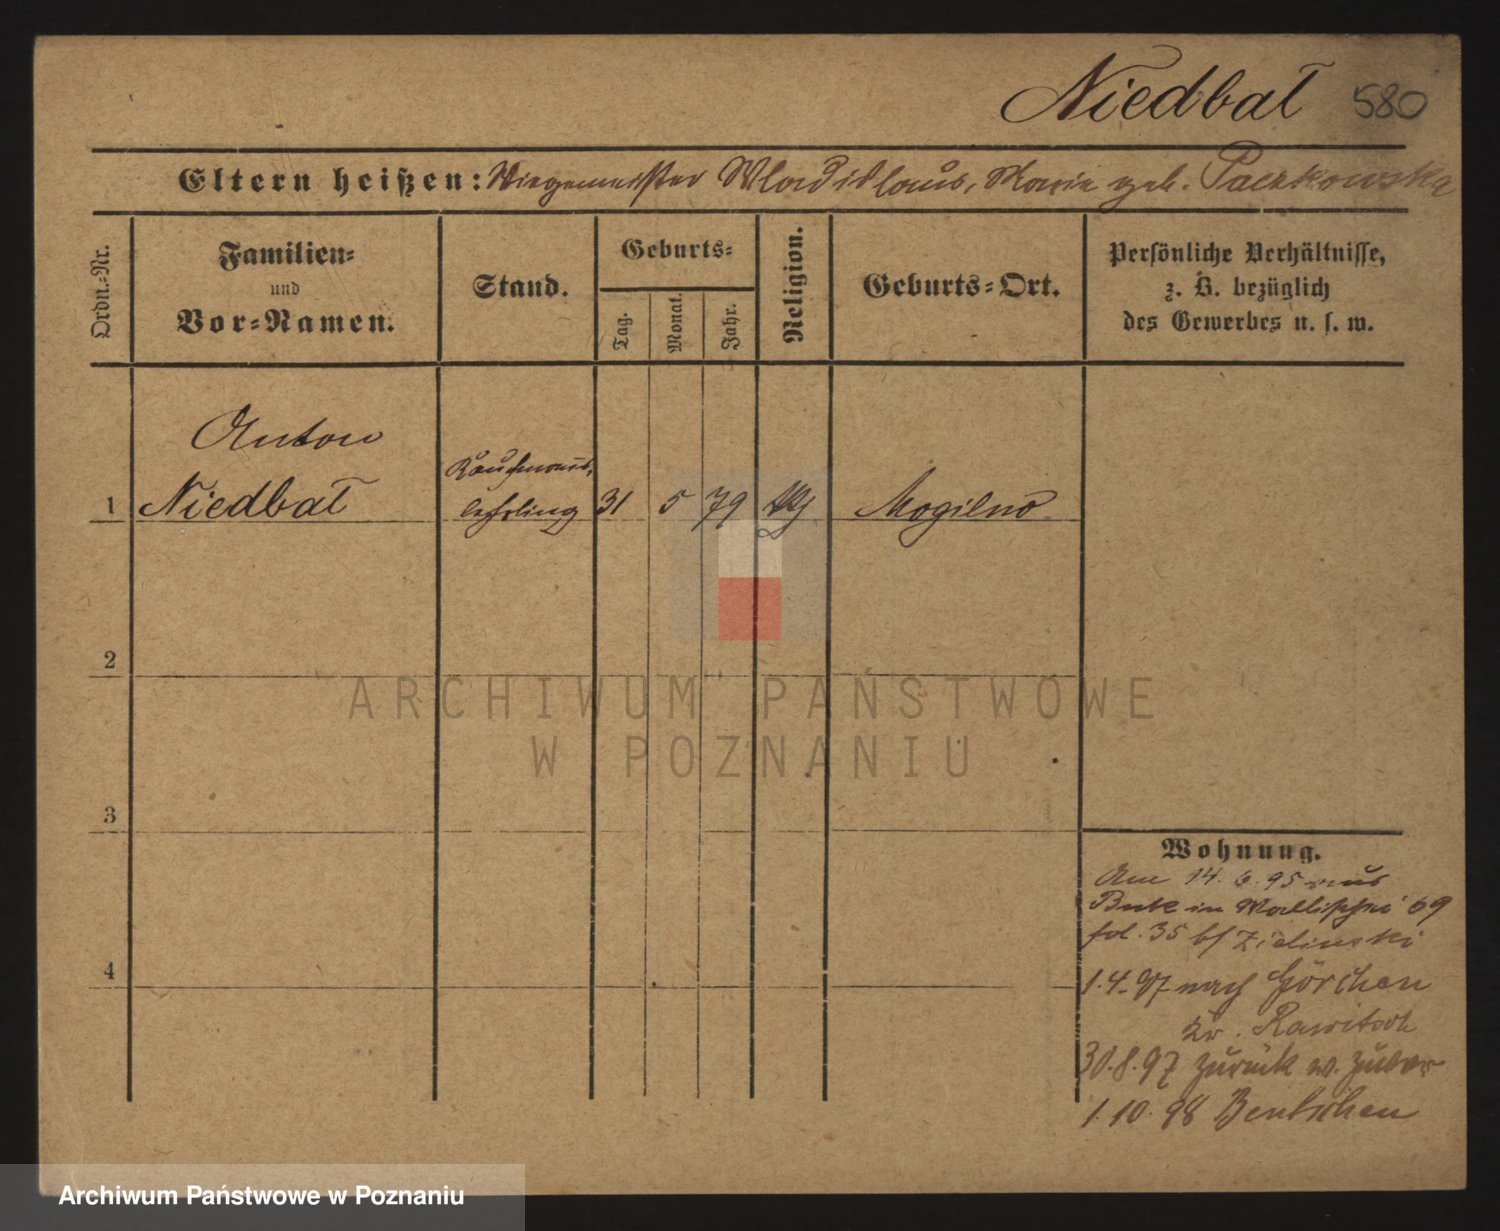 Niedbał 580
Eltern heißen: Wiegemeister Wladislaus, Marie geb. Paczkowska
Ordn.-Nr.
Familien-
und
Vor-Namen.
Stand.
Geburts-
Tag.
Monat.
Jahr.
Religion.
Geburts-Ort.
Persönliche Verhältnisse,
z. B. bezüglich
des Gewerbes u. s. w.
Anton
1 Niedbał
Kaufmanns-
lehrling
31 5 79
Mogilno
2
ARCHIWUM PAŃSTWOWE
W POZNANIU
3
4
Wohnung.
Am 14. 6. 95 aus
Buk in Wallischei 69
fol. 35 b/ Zielinski
1.4.97 nach Görchen
Kr. Rawitsch
30.8.97 zurück w. zuvor
1.10.98 Bentschen
Archiwum Państwowe w Poznaniu